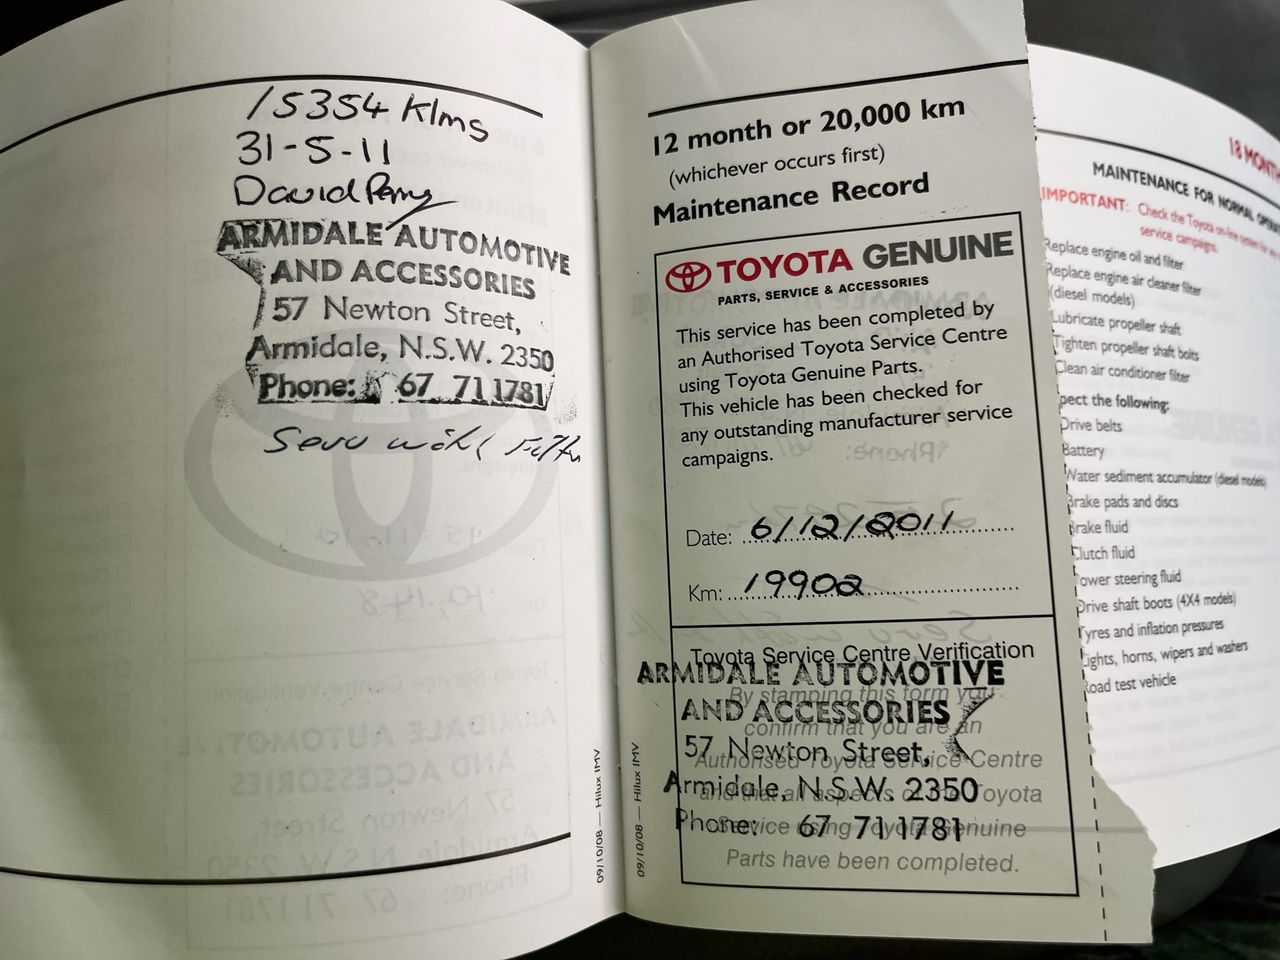 15354 Klms
31-5-11
David Perry
ARMIDALE AUTOMOTIVE
AND ACCESSORIES
57 Newton Street,
Armidale, N.S.W. 2350
Phone: 67 71 1781
09/10/08 — Hilux IMV
09/10/08 — Hilux IMV
12 month or 20,000 km
(whichever occurs first)
Maintenance Record
TOYOTA GENUINE
PARTS, SERVICE & ACCESSORIES
This service has been completed by
an Authorised Toyota Service Centre
using Toyota Genuine Parts.
This vehicle has been checked for
any outstanding manufacturer service
campaigns.
Date: 6/12/2011
Km: 19902
Toyota Service Centre Verification
By stamping this form you
confirm that you are an
Authorised Toyota Service Centre
and that all aspects of the Toyota
Service using Toyota Genuine
Parts have been completed.
ARMIDALE AUTOMOTIVE
AND ACCESSORIES
57 Newton Street,
Armidale, N.S.W. 2350
Phone: 67 71 1781
18 MONTH
MAINTENANCE FOR NORMAL
IMPORTANT: Check the Toyota on-line system for
service campaigns.
Replace engine oil and filter
Replace engine air cleaner filter
(diesel models)
Lubricate propeller shaft
Tighten propeller shaft bolts
Clean air conditioner filter
pect the following:
Drive belts
Battery
Water sediment accumulator (diesel models)
Brake pads and discs
Brake fluid
Clutch fluid
ower steering fluid
Drive shaft boots (4X4 models)
Tyres and inflation pressures
Lights, horns, wipers and washers
Road test vehicle